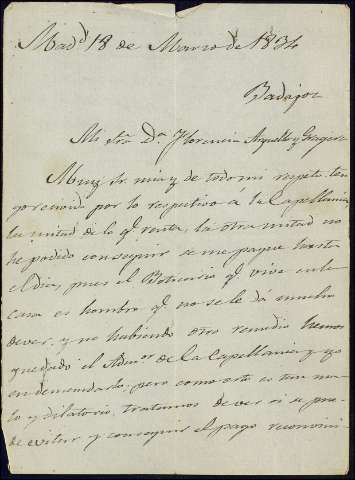 Mad.d 18 de Marzo de 1834
Badajoz
Mi Sra. Da. Florencia Arguello y
Muy Sra. mia y de todo mi respeto: ten-
go recivido por lo respectivo á la Capellania
la mitad de lo q.e renta, la otra mitad no
he podido conseguir se me pague hasta
el dia, pues el Boticario q.e vive en la
casa es hombre q.e no se le dá mucho
dever, y no habiendo otro remedio hemos
quedado el Admor. de la Capellania y yo
en demandarlo; pero como esto es tan ma-
lo y dilatorio, tratamos de ver si se pue-
de evitar y conseguir el pago reconvini-